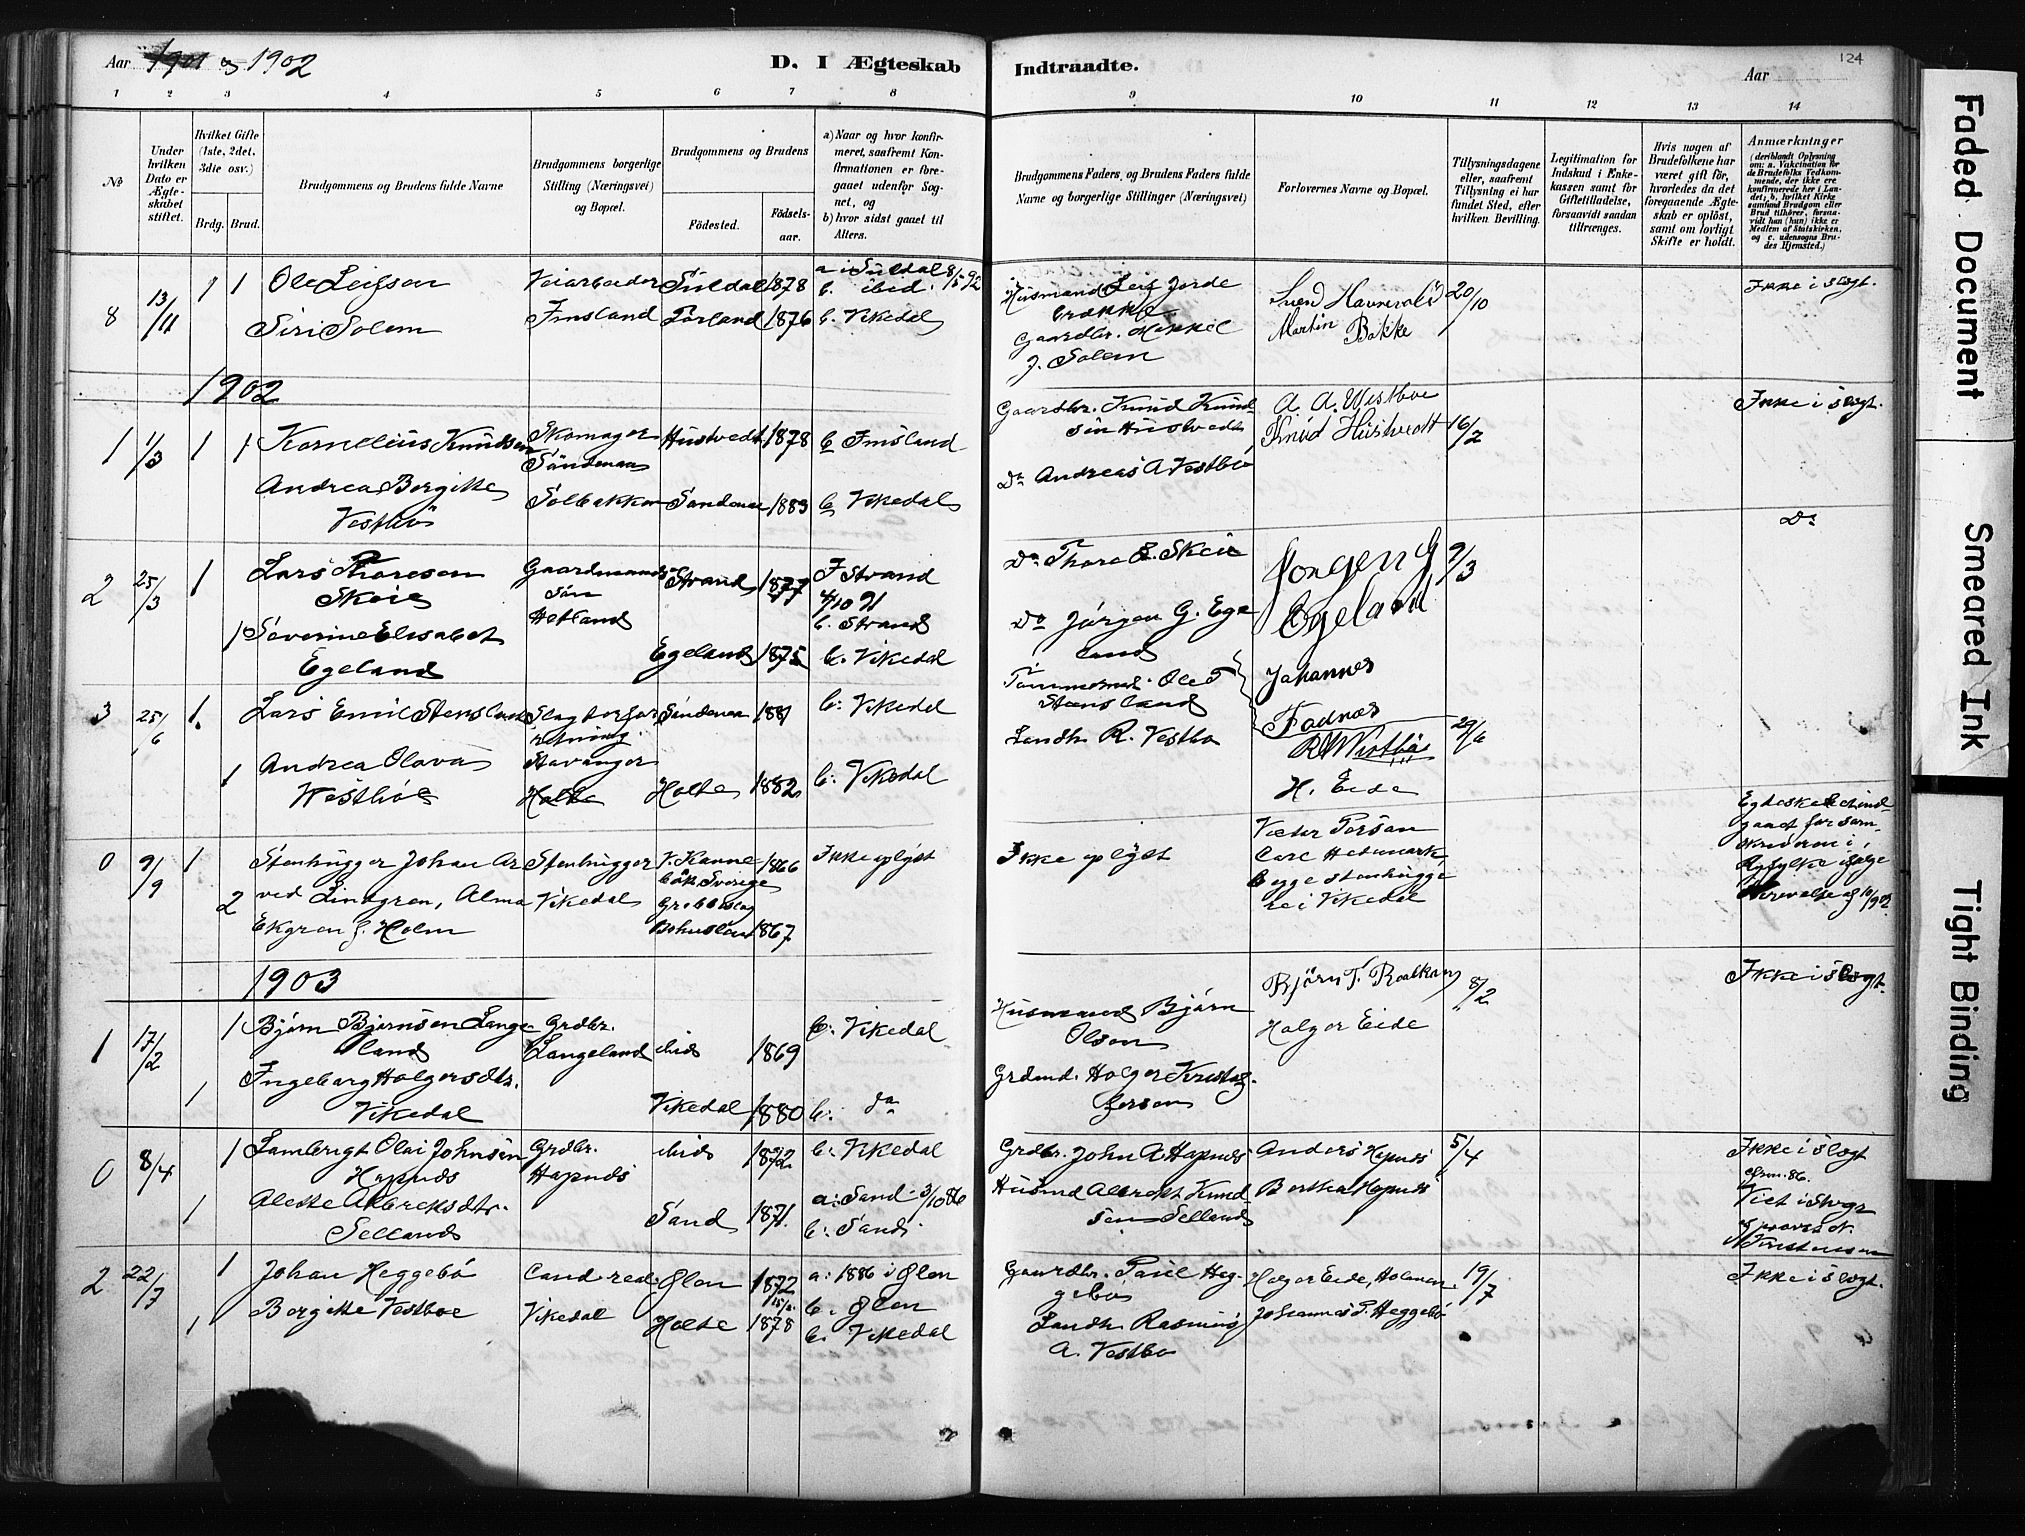 Aar 1901 og 1902
D. I Ægteskab Indtraadte.
Aar
124
1 2 3 4 5 6 7 8 9 10 11 12 13 14
No
Under hvilken Dato er Ægteskabet stiftet.
Hvilket Gifte (1ste, 2det, 3die osv.)
Brdg. Brud.
Brudgommens og Brudens fulde Navne
Brudgommens borgerlige Stilling (Næringsvei) og Bopæl.
Brudgommens og Brudens
Fødested.
Fødselsaar.
a) Naar og hvor konfirmeret, saafremt Konfirmationen er foregaaet udenfor Sognet, og
b) hvor sidst gaaet til Alters.
Brudgommens Faders, og Brudens Faders fulde Navne og borgerlige Stillinger (Næringsvei)
Forlovernes Navne og Bopæl.
Tillysningsdagene eller, saafremt Tillysning ei har fundet Sted, efter hvilken Bevilling.
Legitimation for Indskud i Enkekassen samt for Giftetilladelse, forsaavidt saadan tiltrænges.
Hvis nogen af Brudefolkene har været gift før, hvorledes da det foregaaende Ægteskab er opløst, samt om lovligt Skifte er holdt.
Anmærkninger
(deriblandt Oplysning om: a. Vakcination for de Brudefolks Vedkommende, der ikke ere konfirmerede her i Landet; b. hvilket Kirkesamfund Brudgom eller Brud tilhører, forsaavidt han (hun) ikke er Medlem af Statskirken, og c. udensogns Brudes Hjemsted.)
8 13/11 1 1 Ole Leifson Veiarbeider Suldal 1878 a i Suldal 8/5 92
b. ibid.
Siri Solem Imsland 1876 b. Vikedal
Husmand Leif Jorde
Gaardbr.
J. Solem
Martin Bakke
20/10
Ikke i slegt.
1902
1 1/3 1 1 Kornelius Knudsen Skomager Hustvedt 1878 b Imsland
Andrea Bergitte Vestbö
Solbakken Sandeid 1883 b Vikedal
Gaardbr. Knud Knudsen Hustvedt
Do Andreas A Vestbö
A. A. Westboe
Knud Hustvedt
16/2
Ikke i slegt.
2 25/3 1 Lars Thoresen Skeie
Gaardmands Søn
Hetland
Strand 1877
I Strand
4/10 91
b. Strand
1 Severine Elisabet Egeland
Egeland 1875 b. Vikedal
Do Thore E. Skeie
Do Jørgen G. Egeland
Jørgen G Egeland
9/3
Do
3 25/6 1. Lars Emil Stensland
Stavanger
Sandeid 1881 b: Vikedal
1 Andrea Olava Westböe
Holte Holte 1882 b: Vikedal
Tømmermd. Ole T Stensland
Landh. R. Vestbø
Johannes Fadnes
R Westbø
H. Eide
29/6
0 9/9 1 2 Stenhugger Johan Arved Lindgren, Alma Ekgren f. Holm
Stenhugger Vikedal
1866
Bohuslän 1867
Ikke oplyst
Ikke oplyst
Victor Persson
Carl Hedmark
begge stenhuggere i Vikedal
Egteskabet indgaaet for sorenskriveren i Ryfylke ifølge
1903
1 17/2 1 Bjørn Bjørnsen Langeland
Grdbr. Langeland ibid 1869 b: Vikedal
1 Ingeborg Holgersdtr. Vikedal
Vikedal 1880 b: do
Husmand Bjørn Olson
Grdmd. Holger Kristofferson
Bjørn T. Roalkam
Holger Eide
8/2
Ikke i slegt.
0 8/4 1 Lambrigt Olai Johnsen Hapnæs
Grdbr. Hapnæs
ibid 1872 b: Vikedal
1 Alette Albrektsdtr. Selland
Sand 1871.
a: Sand 3/10 86
b: Sand
Grdbr. John A Hapnæs
Husmd Albrekt Knudsen Selland
Anders Hapnæs
Berthe Hapnæs
5/4
Ikke i slegt
Viet i
Kristensen
2 22/7 1 Johan Heggebö Cand. real Ølen 1872
a: 1886 i Ølen
b. Ølen
1 Bergitte Vestboe Vikedal Holte 1878 b. Vikedal
Gaardbr. Paul Heggebø
Landh. Rasmus A. Vestbø
Holger Eide, Holmen
Johannes P. Heggebö
19/7
Ikke i slegt.
Faded Document
Smeared Ink
Tight Binding